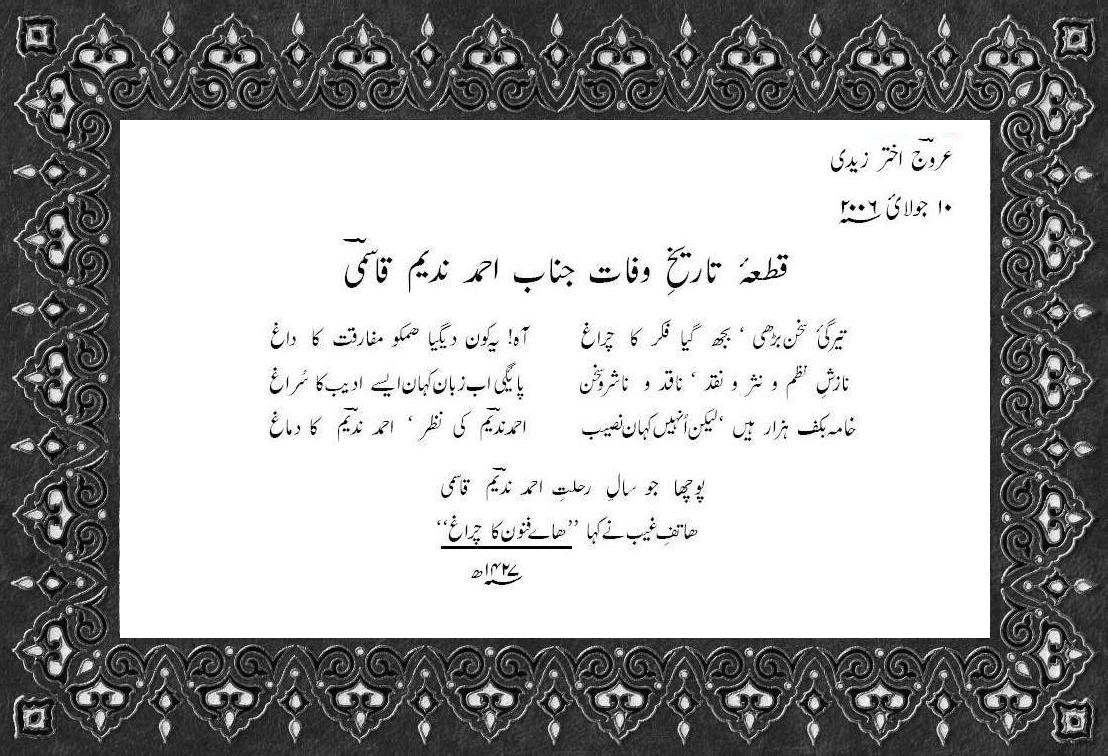 عروجؔ اختر زیدی
۱۰ جولائ ۲۰۰۶
قطعۂ تاریخِ وفات جناب احمد ندیم قاسمیؔ
تیرگئ سخن بڑھی ‘ بجھ گیا فکر کا چراغ آہ! یہ کون دیگیا ھمکو مفارقت کا داغ
نازشِ نظم و نثر و نقد ‘ ناقد و ناشروسخن پایٔگی اب زبان کہان ایسے ادیب کا سُراغ
خامہ بکف ہزار ہیں ‘لیکن اُنہیں کہان نصیب احمد ندیمؔ کی نظر ‘ احمد ندیمؔ کا دماغ
پوچھا جو سالِ رحلتِ احمد ندیمؔ قاسمی
ھاتفِ غیب نے کہا ’’ھاۓ فنون کا چراغ‘‘
۱۴۲۷ھ